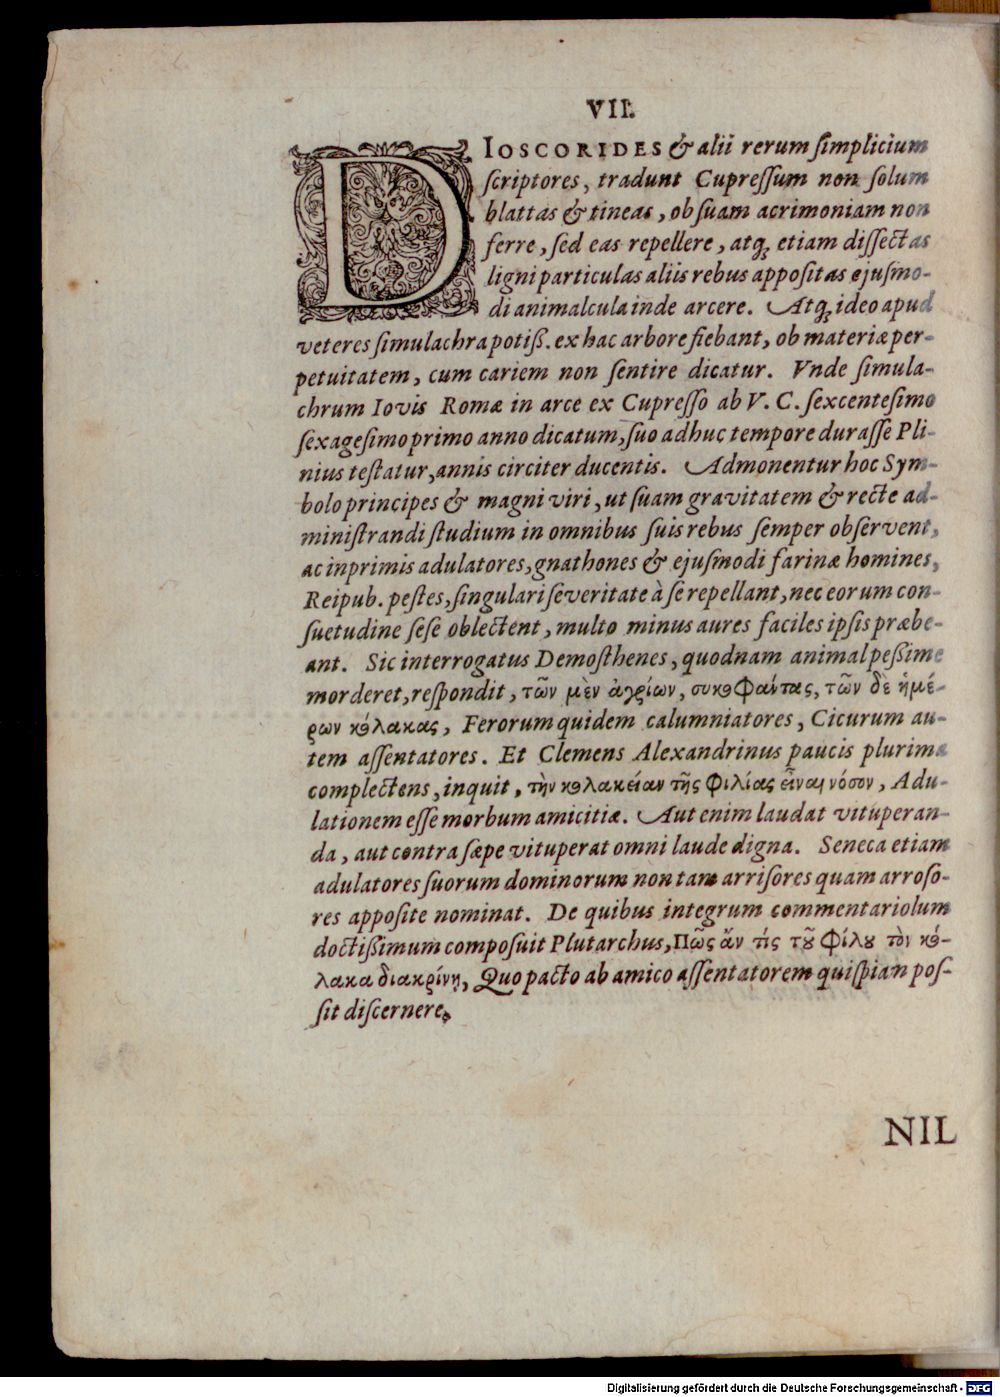 VII.
DIOSCORIDES & alii rerum ſimplicium
ſcriptores, tradunt Cupreſſum non ſolum
blattas & tineas, ob ſuam acrimoniam non
ferre, ſed eas repellere, atq́; etiam diſſectas
ligni particulas aliis rebus appoſitas ejuſmo-
di animalcula inde arcere. Atq́; ideo apud
veteres ſimulachra potiß. ex hac arbore fiebant, ob materiæ per-
petuitatem, cum cariem non ſentire dicatur. Vnde ſimula-
chrum Iovis Romæ in arce ex Cupreſſo ab V. C. ſexcenteſimo
ſexageſimo primo anno dicatum, ſuo adhuc tempore duraſſe Pli-
nius teſtatur, annis circiter ducentis. Admonentur hoc Sym-
bolo principes & magni viri, ut ſuam gravitatem & recte ad-
miniſtrandi ſtudium in omnibus ſuis rebus ſemper obſervent,
ac inprimis adulatores, gnathones & ejuſmodi farinæ homines,
Reipub. peſtes, ſingulari ſeveritate à ſe repellant, nec eorum con-
ſuetudine ſeſe oblectent, multo minus aures faciles ipſis præbe-
ant. Sic interrogatus Demoſthenes, quodnam animal peßime
morderet, reſpondit, τῶν μὲν ἀγρίων, συκοφαίτας, τῶν δὲ ἡμέ-
ρων κόλακας, Ferorum quidem calumniatores, Cicurum au-
tem aſſentatores. Et Clemens Alexandrinus paucis plurima
complectens, inquit, τὴν κολακείαν τῆς φιλίας εἶναι νόσον, Adu-
lationem eſſe morbum amicitiæ. Aut enim laudat vituperan-
da, aut contra ſæpe vituperat omni laude digna. Seneca etiam
adulatores ſuorum dominorum non tam arriſores quam arroſo-
res appoſite nominat. De quibus integrum commentariolum
doctißimum compoſuit Plutarchus, Πῶς ἄν τίς τȣ͂ φίλȣ τὸν κό-
λακα διακρίνῃ, Quo pacto ab amico aſſentatorem quiſpiam poſ-
ſit diſcernere.
NIL
Digitalisierung gefördert durch die Deutsche Forschungsgemeinschaft - DFG